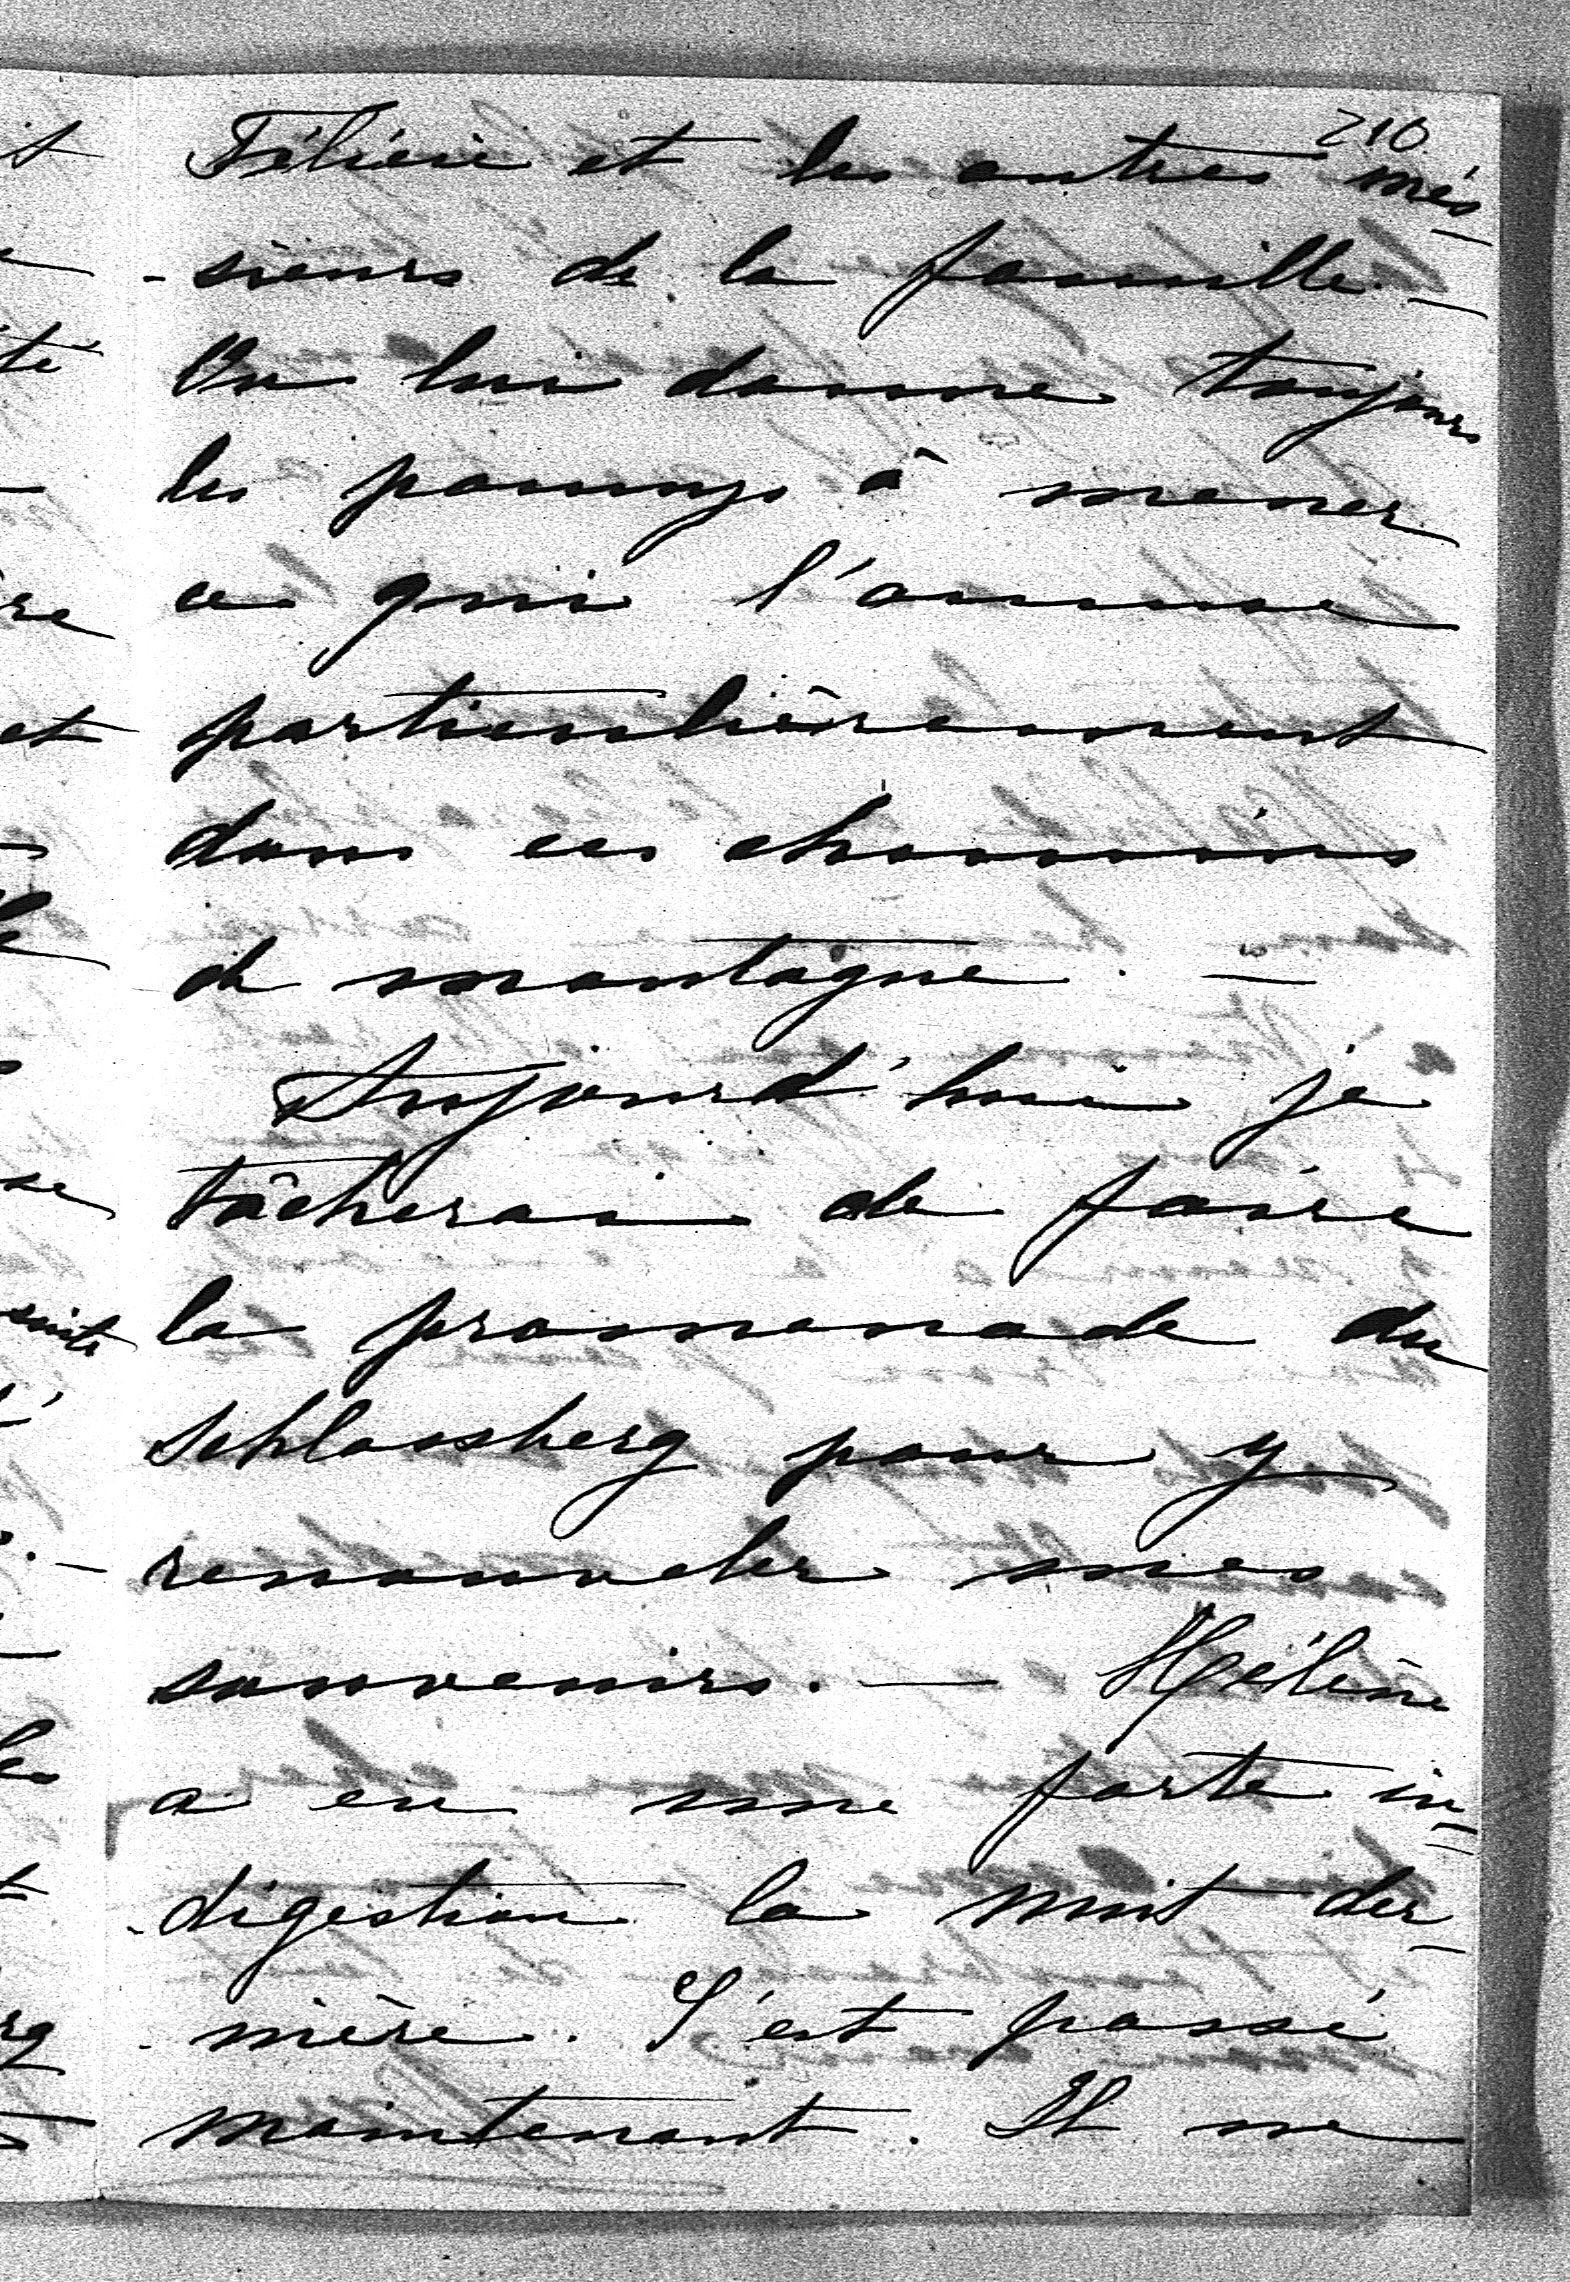 210
Félicie et les autres més
-sieurs de la famille. —
On lui donne toujours
les poneys à mener
ce qui l'amuse
particulièrement
dans ces chemins
de montagne. —
Aujourd'hui je
tâcherai de faire
la promenade du
Schlossberg pour y
renouveler mes
souvenirs. — Hélène
a eu une forte in-
-digestion la nuit der-
-nière. C'est passé
maintenant. Il ne